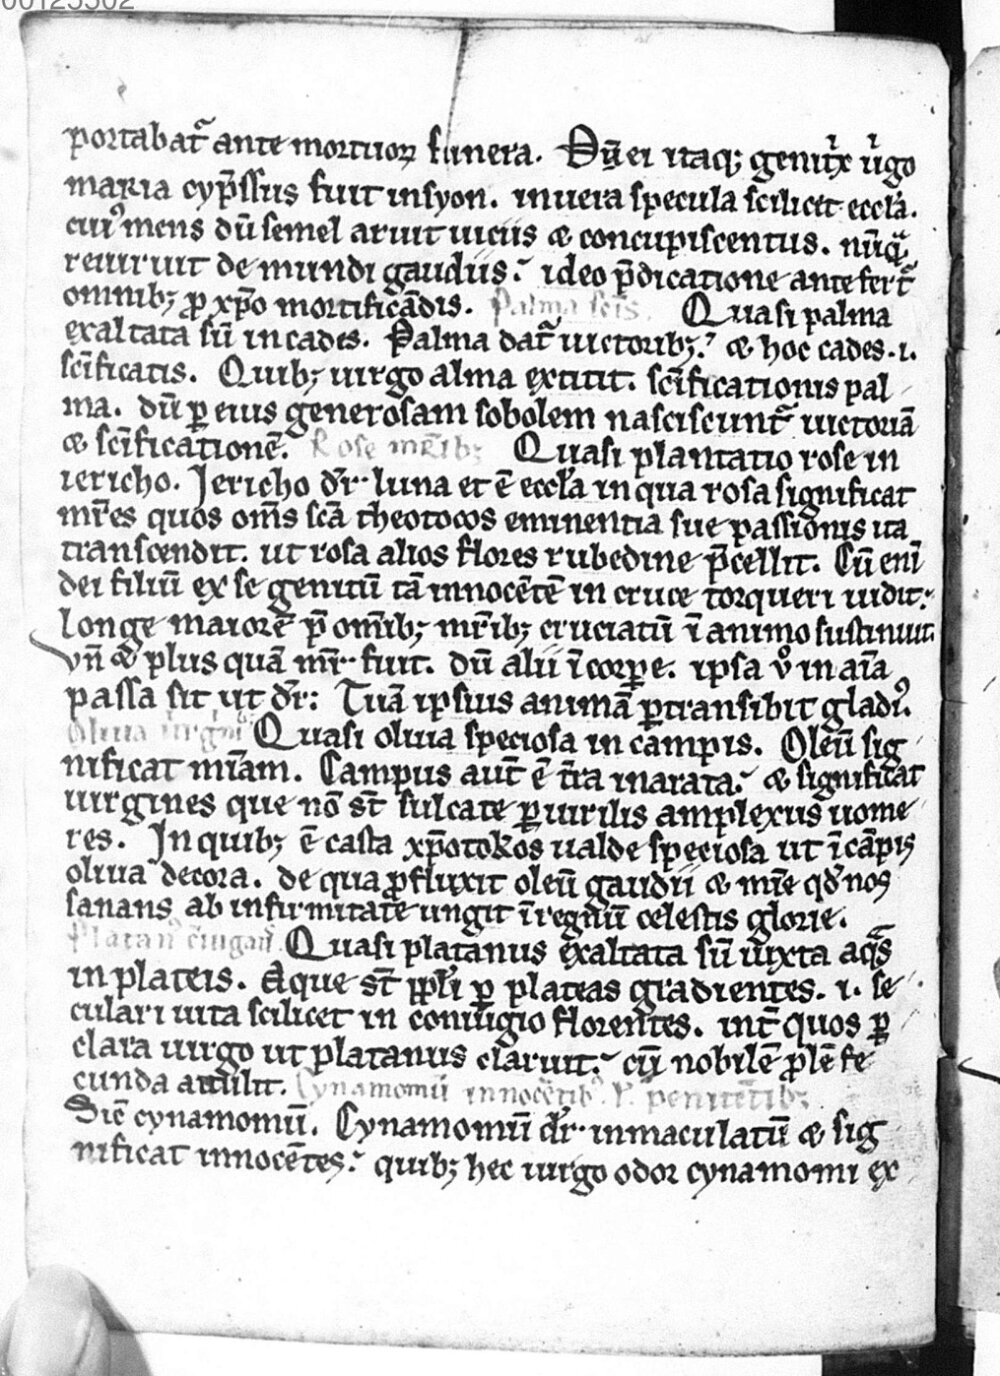 00125502
portabat᷑ ante mortuoꝝ funera. Dn̄ ei itaq; genitͥx uͥgo
maria cyp̄ssus fuit in syon. in uera specula scilicet eccl̄a.
cui⁹ mens dū semel aruit uiciis ⁊ concupiscentiis. nūqᷓ
reuiruit de mundi gaudiis. ideo p̄dicatione antefert᷑
omnib; ꝓ xp̄o mortificādis. Palma scīs. Quasi palma
exaltata sū in cades. Palma dat᷑ uictorib;. ⁊ hoc cades .i.
scīficatis. Quib; uirgo alma extitit. scīficationis pal
ma. dū ꝑ eius generosam sobolem nasciscunt᷑ uictoriā
⁊ scīficationē. Rose mr̄ib; Quasi plantatio rose in
iericho. Jericho dr̄ luna et ē eccl̄a in qua rosa significat
mr̄es quos om̄s scā theotocos eminentia sue passionis ita
transcendit. ut rosa alios flores rubedine p̄cellit. Cū eni̅
dei filiū ex se genitū tā innocētē in cruce torqueri uidit.
longe maiorē p̄ om̄ib; mr̄ib; cruciatū ī animo sustinuit.
vn̄ ⁊ plus quā mr̄ fuit. dū alii ī corpe. ipsa v̊ in aīa
passa sit ut dr̄: Tuā ipsius animā ꝑtransibit gladi⁹.
Oliua uirgini⁹ Quasi oliua speciosa in campis. Oleū sig
nificat mīam. Campus aut̄ ē t̄ra inarata. ⁊ significat
uirgines que nō st̄ sulcate ꝑ uirilis amplexus uome
res. In quib; ē casta xp̄otokos ualde speciosa ut ī cāpis
oliua decora. de qua ꝓfluxit oleū gaudii ⁊ mīe qd̄ nos
sanans ab infirmitate ungit ī regnū celestis glorie.
Platan⁹ Quasi platanus exaltata sū iuxta aqᷓs
in plateis. Aque st̄ ppl̄i ꝑ plateas gradientes. i. se
culari uita scilicet in coniugio florentes. int̄ quos ꝑ
clara uirgo ut platanus claruit. cū nobilē ꝓlē fe
cunda attulit. Cynamomū innocētib⁹. ł penitētib;
Sic̄ cynamomū. Cynamomū dr̄ inmaculatū ⁊ sig
nificat innocētes. quib; hec uirgo odor cynamomi ex